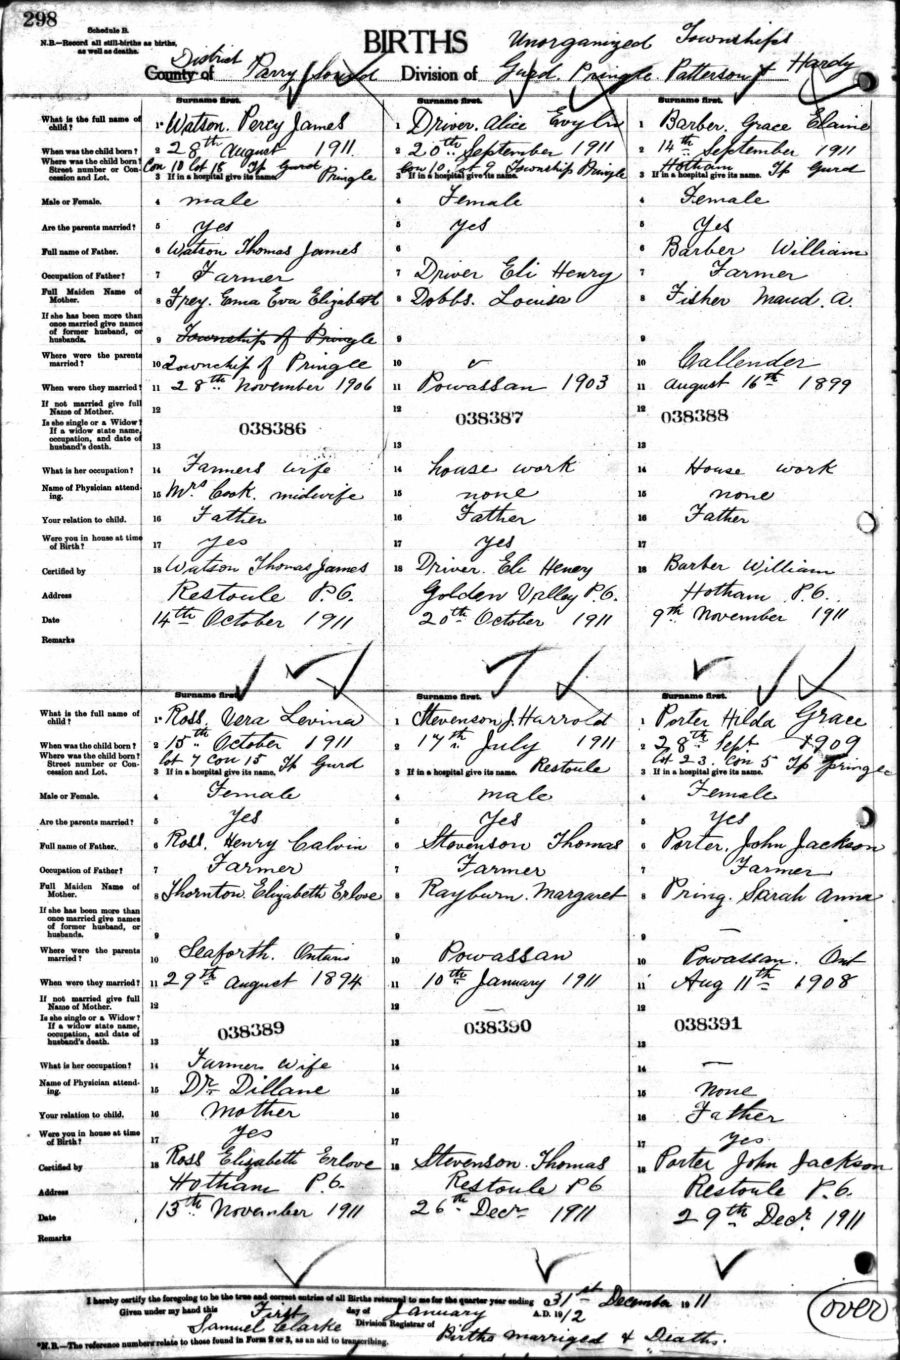 298
Schedule B.
N.B.—Record all still-births as births,
as well as deaths.
BIRTHS
Unorganized Townships
District
County of Parry Sound Division of Gurd Pringle Patterson & Hardy
Surname first. Surname first. Surname first.
What is the full name of child? 1* Watson. Percy James 1 Driver. Alice Evylin 1 Barber. Grace Elaine
When was the child born? 2 28th August 1911 2 20th September 1911 2 14th September 1911
Where was the child born? Street number or Concession and Lot. Con 10 Lot 18 Tp Gurd Pringle Con 10 Lot 9 Township Pringle Hotham Tp Gurd
3 If in a hospital give its name. 3 If in a hospital give its name. 3 If in a hospital give its name.
Male or Female. 4 male 4 Female 4 Female
Are the parents married? 5 yes 5 yes 5 Yes
Full name of Father. 6 Watson Thomas James 6 6 Barber William
Occupation of Father? 7 Farmer 7 Driver Eli Henry 7 Farmer
Full Maiden Name of Mother. 8 Frey. Ema Eva Elizabeth 8 Dobbs. Louisa 8 Fisher Maud. A.
If she has been more than once married give names of former husband, or husbands. 9 Township of Pringle 9 9
Where were the parents married? 10 Township of Pringle 10 10 Callender
When were they married? 11 28th November 1906 11 Powassan 1903 11 August 16th 1899
If not married give full Name of Mother. 12 12 12
038386 038387 038388
Is she single or a Widow? If a widow state name, occupation, and date of husband's death. 13 13 13
What is her occupation? 14 Farmers wife 14 house work 14 House work
Name of Physician attending. 15 Mrs Cook. midwife 15 none 15 none
Your relation to child. 16 Father 16 Father 16 Father
Were you in house at time of Birth? 17 yes 17 yes 17
Certified by 18 Watson Thomas James 18 Driver. Eli Henry 18 Barber William
Address Restoule P.O. Golden Valley P.O. Hotham P.O.
Date 14th October 1911 20th October 1911 9th November 1911
Remarks
Surname first. Surname first. Surname first.
What is the full name of child? 1* Ross. Vera Levina 1 Stevenson J. Harrold 1 Porter Hilda Grace
When was the child born? 2 15th October 1911 2 17th July 1911 2 28th Sept 1909
Where was the child born? Street number or Concession and Lot. Lot 7 Con 15 Tp Gurd Restoule Lot 23. Con 5 Tp Pringle
3 If in a hospital give its name. 3 If in a hospital give its name. 3 If in a hospital give its name.
Male or Female. 4 Female 4 male 4 Female
Are the parents married? 5 Yes 5 Yes 5 yes
Full name of Father. 6 Ross. Henry Calvin 6 Stevenson Thomas 6 Porter. John Jackson
Occupation of Father? 7 Farmer 7 Farmer 7 Farmer
Full Maiden Name of Mother. 8 Thornton. Elizabeth Erlove 8 Rayburn. Margaret 8 Pring. Sarah Anna
If she has been more than once married give names of former husband, or husbands. 9 9 9 —
Where were the parents married? 10 Seaforth. Ontario 10 Powassan 10 Powassan. Ont
When were they married? 11 29th August 1894 11 10th January 1911 11 Aug 11th 1908
If not married give full Name of Mother. 12 12 12
038389 038390 038391
Is she single or a Widow? If a widow state name, occupation, and date of husband's death. 13 13 13
What is her occupation? 14 Farmers Wife 14 14 —
Name of Physician attending. 15 Dr. Dillane 15 15 None
Your relation to child. 16 Mother 16 16 Father
Were you in house at time of Birth? 17 yes 17 17 yes
Certified by 18 Ross Elizabeth Erlove 18 Stevenson. Thomas 18 Porter John Jackson
Address Hotham P.O. Restoule P O Restoule P.O.
Date 13th November 1911 26th Decr 1911 29th Decr. 1911
Remarks
I hereby certify the foregoing to be the true and correct entries of all Births returned to me for the quarter year ending 31st December 1911
Given under my hand this First day of January A.D. 1912
Samuel Clarke Division Registrar of Births marriges & Deaths.
*N.B.—The reference numbers relate to those found in Form 2 or 3, as an aid to transcribing.
(over)